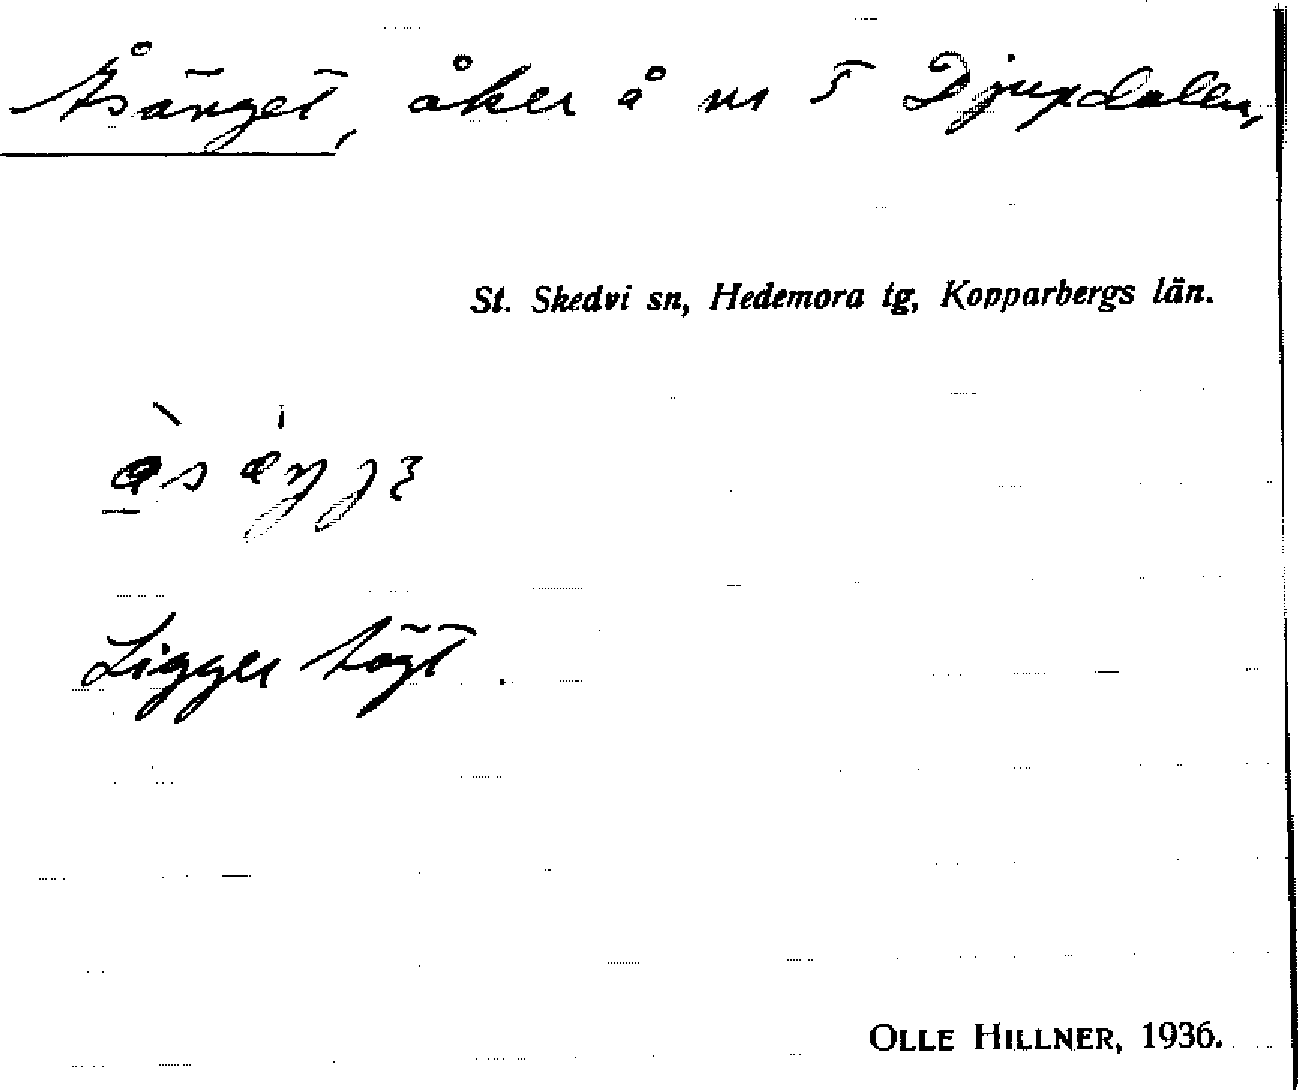 Åsänget, åker å nr 5 Djupdalen,
St. Skedvi sn, Hedemora tg, Kopparbergs län.
Ligger högt.
OLLE HILLNER, 1936.